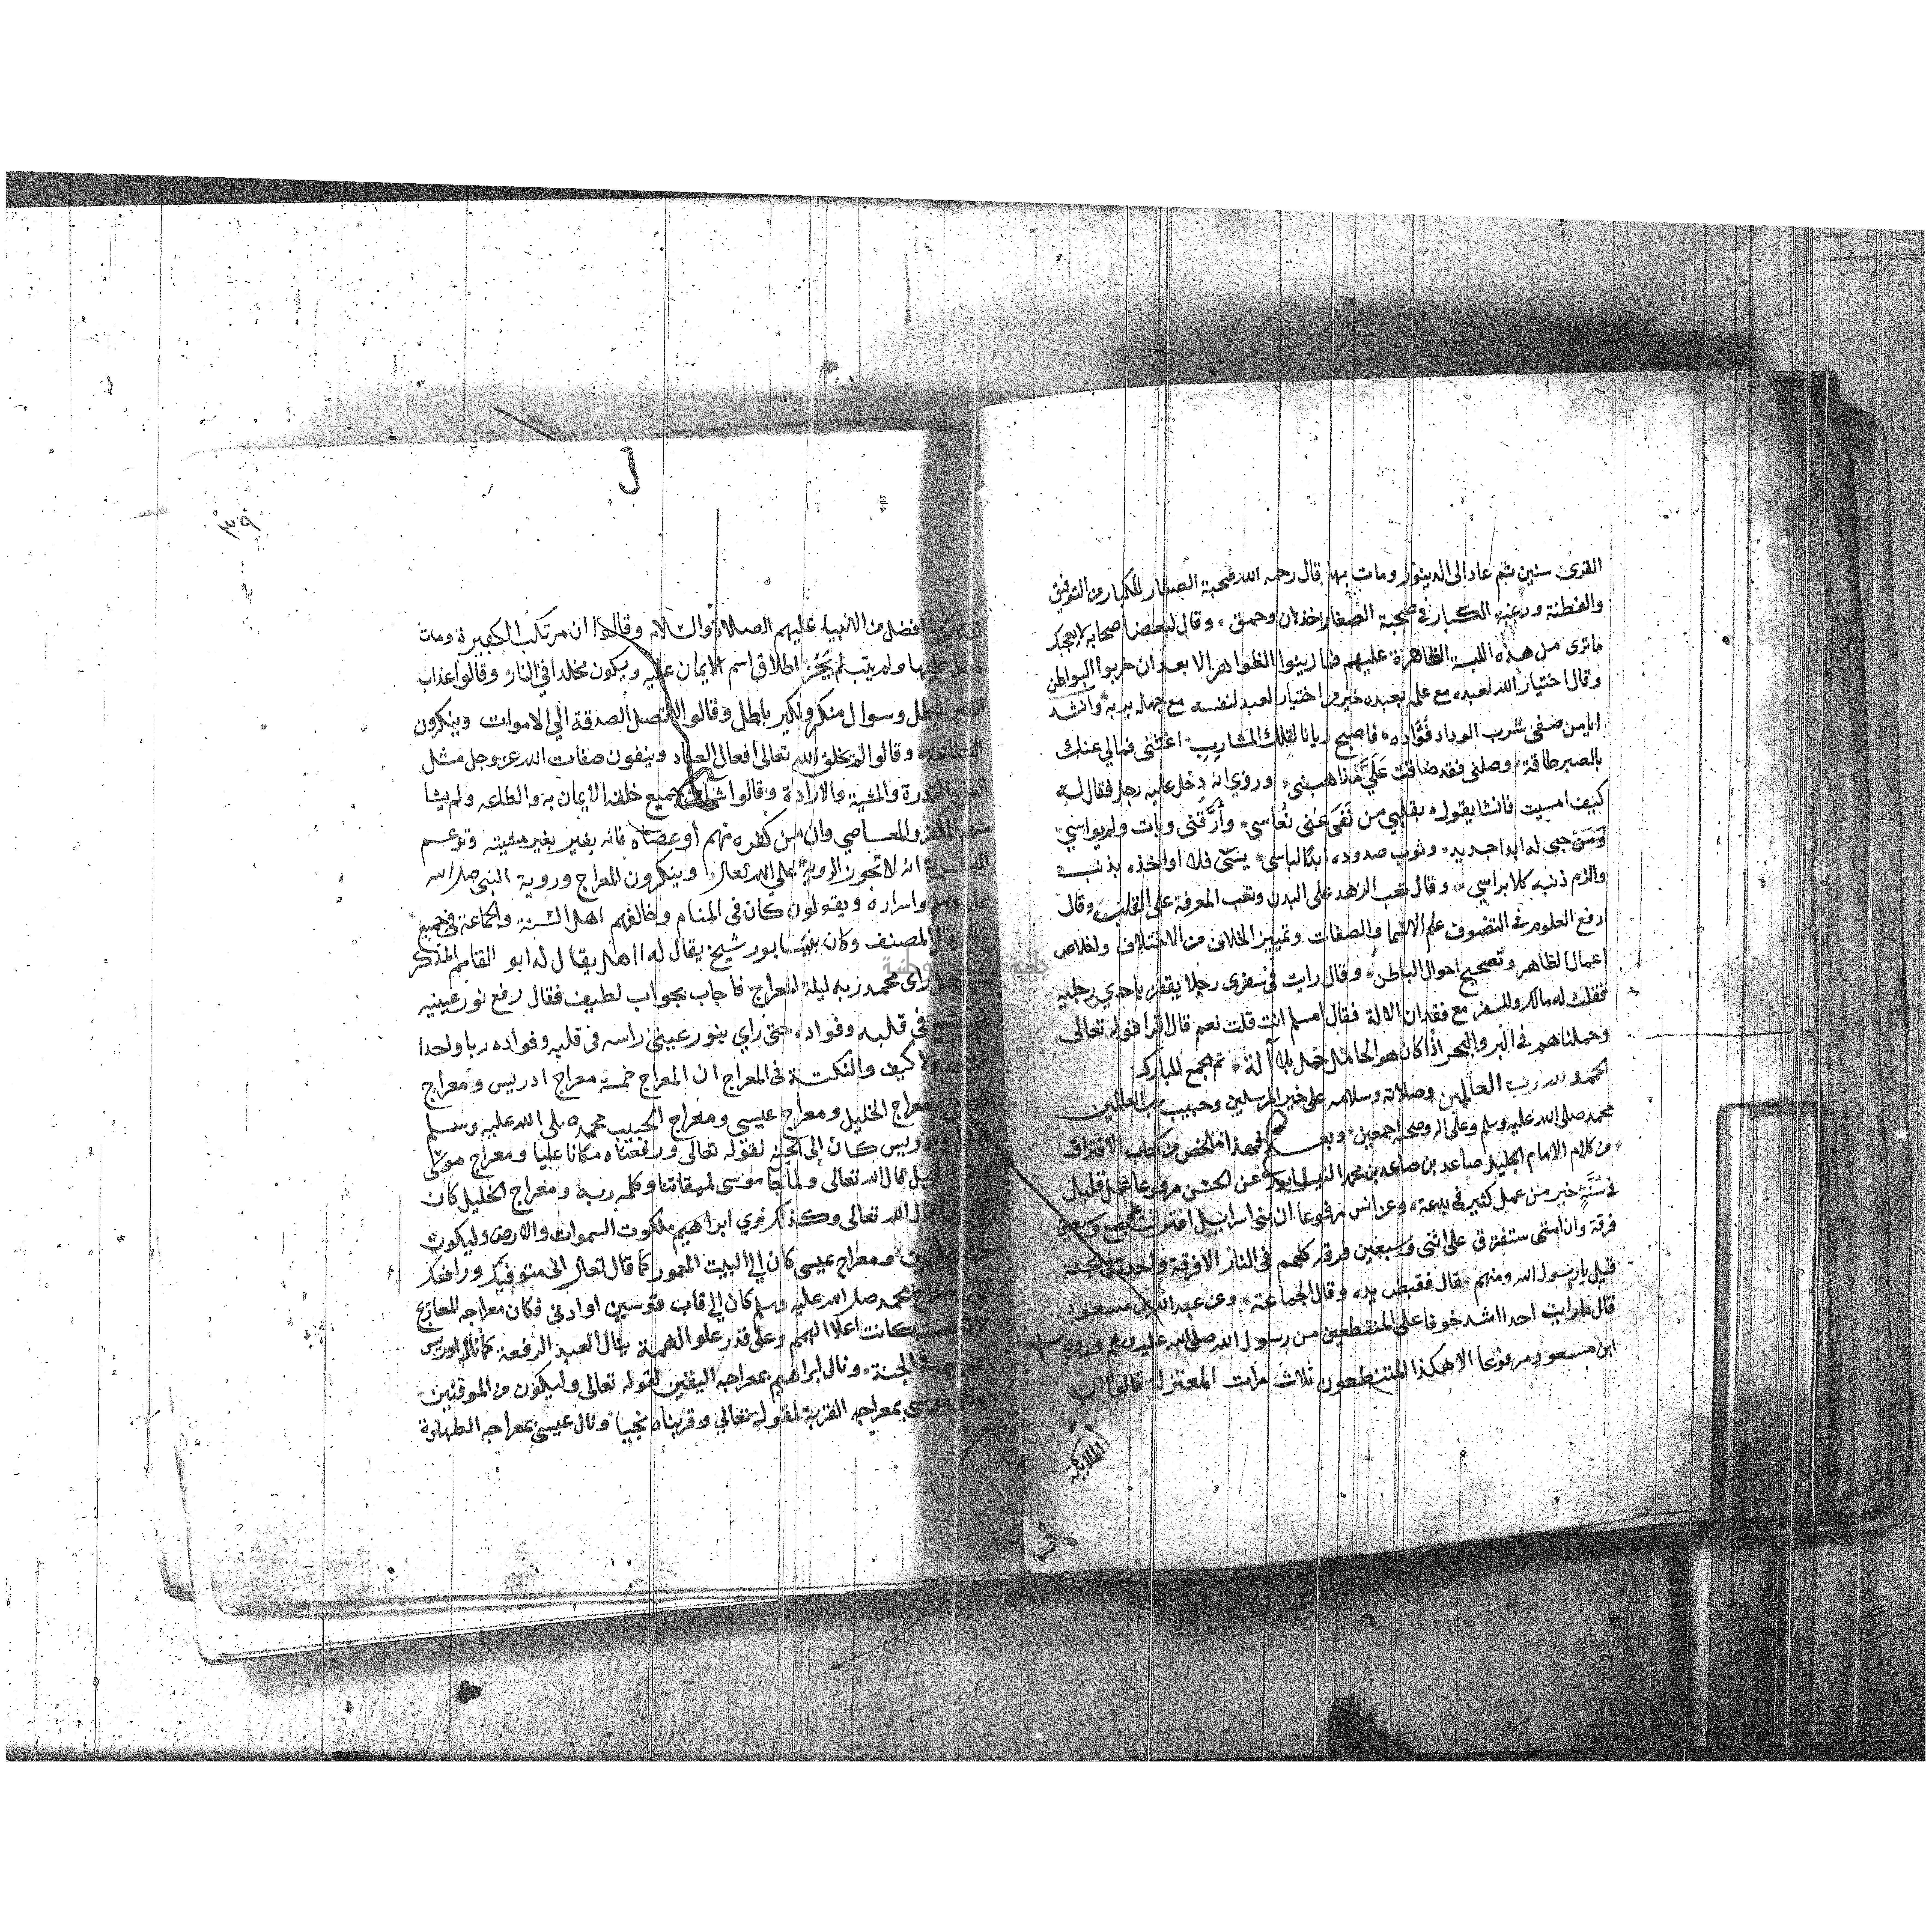 القرى سنين ثم عاد الى الدينور ومات بها قال رحمه الله صحبة الصغار للكبار من التوفيق
والفطنة ورغبة الكبار في صحبة الصغار خذلان وحمق وقال لبعض اصحابه لا يعجبك
ماترى من هذه اللبسة الظاهرة عليهم فما زينوا الظواهر الا بعد ان خربوا البواطن
وقال اختيار الله لعبده مع علمه بعبده خير من اختيار العبد لنفسه مع جهله بربه وانشد
ايا من صفى شرب الوداد فؤاده فاصبح ريانا لتلك المشارب اغثنى فمالي عنك
بالصبر طاقة وصلنى فقد ضاقت علي مذاهبى وروي انه دخل عليه رجل فقال له
كيف امسيت فانشا يقول بقلبي من نفى عنى نعاسي وأرقنى وبات ولم يواسي
ومن حبى له ابدا جديد وثوب صدوده ابدا لباسي ينسى فلا اواخذه بذنب
والزم ذنبه كلا براسي وقال تعب الزهد على البدن وتعب المعرفة على القلب وقال
ارفع العلوم في التصوف علم الاسما والصفات وتمييز الخلاف من الاختلاف واخلاص
اعمال الظاهر وتصحيح احوال الباطن وقال رايت في سفرى رجلا يقفز باحدي رجليه
فقلت له مالك وللسفر مع فقدان الالة فقال امسلم انت قلت نعم قال اقرا قوله تعالى
وحملناهم في البر والبحر اذا كان هو الحامل حمل بلا آلة تم المجمع المبارك
الحمد لله رب العالمين وصلاته وسلامه على خير المرسلين وحبيب رب العالمين
محمد صلى الله عليه وسلم وعلى اله وصحبه اجمعين فهذا ملخص من كتاب الافتراق
من كلام الامام الجليل صاعد بن صاعد بن محمد عن الحسن مرفوعا عمل قليل
في سنة خير من عمل كثير في بدعة وعن انس مرفوعا ان بنى اسرايل افترقت على بضع وسبعين
فرقة وان امتى ستفترق على اثنى وسبعين فرقة كلهم في النار الا فرقة واحدة في الجنة
قيل يا رسول الله ومنهم قال فقبض يده وقال الجماعة وعن عبد الله بن مسعود
قال ما رايت احدا اشد خوفا على المتنطعين من رسول الله صلى الله عليه وسلم وروي
ابن مسعود مرفوعا الا هكذا المتنطعون ثلاث مرات المعتزلة قالوا ان
الملايكة
٣٩
الملايكة افضل من الانبياء عليهم الصلاة والسلام وقالوا ان مرتكب الكبيرة ومات
مصرا عليها ولم يتب لم يجز اطلاق اسم الايمان عليه ويكون مخلدا في النار وقالوا عذاب
القبر باطل وسوال منكر ونكير باطل وقالوا لا تصل الصدقة الي الاموات وينكرون
الشفاعة وقالوا لم يخلق الله تعالى افعال العباد وينفون صفات الله عز وجل مثل
العلم والقدرة والمشية والارادة وقالوا شا من جميع خلقه الايمان به والطاعه ولم يشا
منهم الكفر والمعاصي وان من كفر منهم او عصاه فانه بغير مشيته وتزعم
البشرية انه لا تجوز الروية على الله تعالى وينكرون المعراج وروية النبى صلى الله
عليه وسلم واسراره ويقولون كان في المنام وخالفهم اهل السنة والجماعة في جميع
ذلك قال المصنف وكان بنيسابور شيخ يقال له ابو القاسم المذكر
هل راى محمد ربه ليلة المعراج فاجاب بجواب لطيف فقال رفع نور عينيه
فوضع في قلبه وفواده حتى راي بنور عينى راسه في قلبه وفواده ربا واحدا
بلا حد ولا كيف والنكتة في المعراج ان المعراج خمسة معراج ادريس ومعراج
موسى ومعراج الخليل ومعراج عيسى ومعراج الحبيب محمد صلى الله عليه وسلم
فمعراج ادريس كان الى الجنة لقوله تعالى ورفعناه مكانا عليا ومعراج موسى
كان الى الجبل قال الله تعالى ولما جا موسى لميقاتنا وكلمه ربه ومعراج الخليل كان
الى السما قال الله تعالى وكذلك نري ابراهيم ملكوت السموات والارض وليكون
من الموقنين ومعراج عيسى كان الي البيت المعمور كما قال تعالى انى متوفيك ورافعك
الي ومعراج محمد صلى الله عليه وسلم كان الي قاب قوسين او ادنى فكان معراجه المعارج
لان همته كانت اعلا الهمم وعلى قدر علو الهمة ينال العبد الرفعة كما نال ادريس
بمعراجه الجنة ونال ابراهيم بمعراجه اليقين لقوله تعالى وليكون من الموقنين
ونال موسى بمعراجه القربة لقوله تعالي وقربناه نجيا ونال عيسى بمعراجه الطهارة